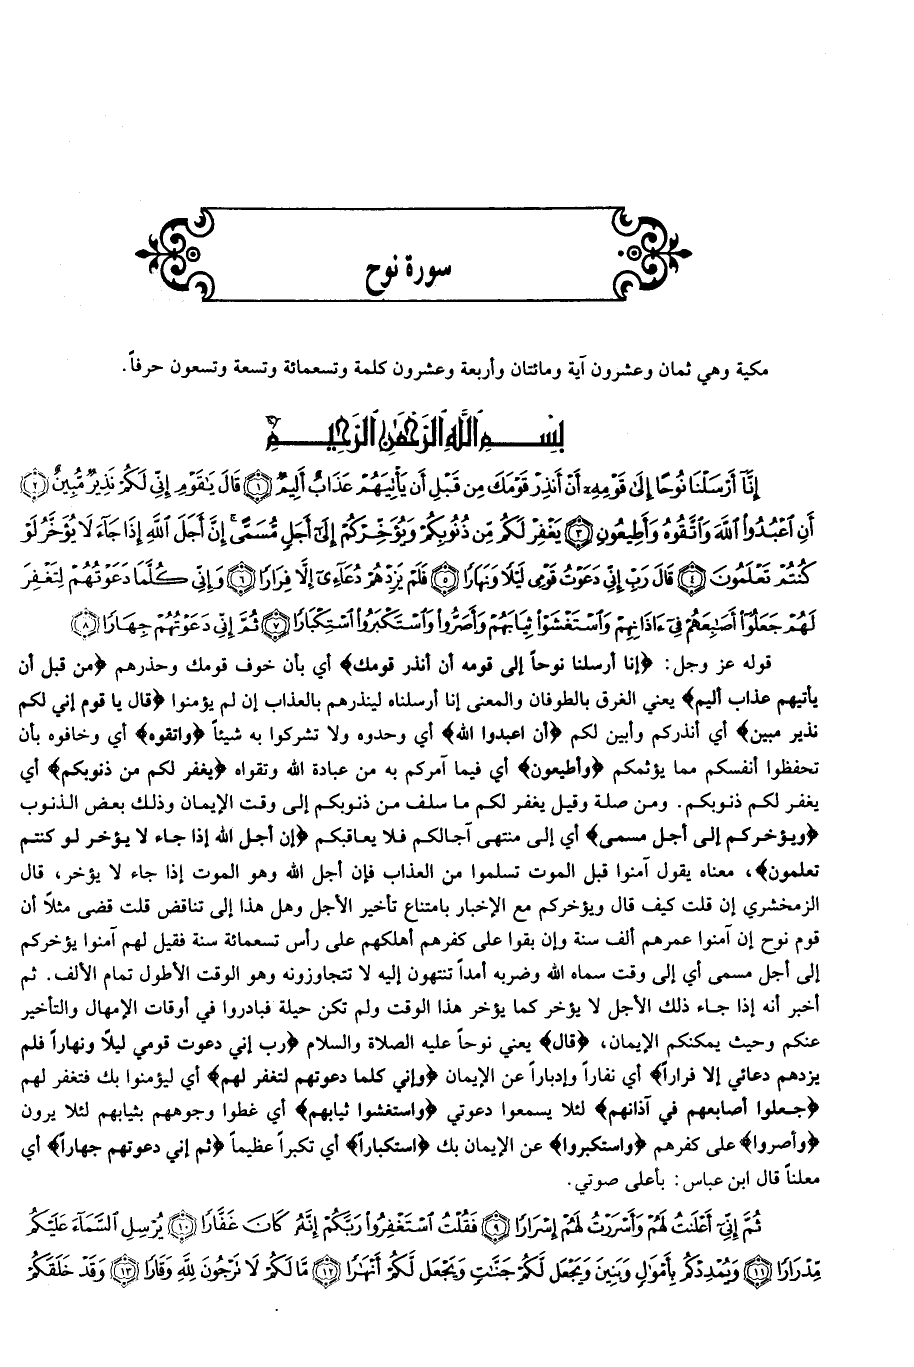 سورة نوح
مكية وهي ثمان وعشرون آية ومائتان وأربعة وعشرون كلمة وتسعمائة وتسعة وتسعون حرفاً.
بِسْمِ اللَّهِ الرَّحْمَٰنِ الرَّحِيمِ
إِنَّآ أَرْسَلْنَا نُوحًا إِلَىٰ قَوْمِهِۦٓ أَنْ أَنذِرْ قَوْمَكَ مِن قَبْلِ أَن يَأْتِيَهُمْ عَذَابٌ أَلِيمٌ ﴿١﴾ قَالَ يَٰقَوْمِ إِنِّى لَكُمْ نَذِيرٌ مُّبِينٌ ﴿٢﴾
أَنِ ٱعْبُدُوا۟ ٱللَّهَ وَٱتَّقُوهُ وَأَطِيعُونِ ﴿٣﴾ يَغْفِرْ لَكُم مِّن ذُنُوبِكُمْ وَيُؤَخِّرْكُمْ إِلَىٰٓ أَجَلٍ مُّسَمًّى ۚ إِنَّ أَجَلَ ٱللَّهِ إِذَا جَآءَ لَا يُؤَخَّرُ لَوْ
كُنتُمْ تَعْلَمُونَ ﴿٤﴾ قَالَ رَبِّ إِنِّى دَعَوْتُ قَوْمِى لَيْلًا وَنَهَارًا ﴿٥﴾ فَلَمْ يَزِدْهُمْ دُعَآءِىٓ إِلَّا فِرَارًا ﴿٦﴾ وَإِنِّى كُلَّمَا دَعَوْتُهُمْ لِتَغْفِرَ
لَهُمْ جَعَلُوٓا۟ أَصَٰبِعَهُمْ فِىٓ ءَاذَانِهِمْ وَٱسْتَغْشَوْا۟ ثِيَابَهُمْ وَأَصَرُّوا۟ وَٱسْتَكْبَرُوا۟ ٱسْتِكْبَارًا ﴿٧﴾ ثُمَّ إِنِّى دَعَوْتُهُمْ جِهَارًا ﴿٨﴾
قوله عز وجل: ﴿إنا أرسلنا نوحاً إلى قومه أن أنذر قومك﴾ أي بأن خوف قومك وحذرهم ﴿من قبل أن
يأتيهم عذاب أليم﴾ يعني الغرق بالطوفان والمعنى إنا أرسلناه لينذرهم بالعذاب إن لم يؤمنوا ﴿قال يا قوم إني لكم
نذير مبين﴾ أي أنذركم وأبين لكم ﴿أن اعبدوا الله﴾ أي وحدوه ولا تشركوا به شيئاً ﴿واتقوه﴾ أي وخافوه بأن
تحفظوا أنفسكم مما يؤثمكم ﴿وأطيعون﴾ أي فيما آمركم به من عبادة الله وتقواه ﴿يغفر لكم من ذنوبكم﴾ أي
يغفر لكم ذنوبكم. ومن صلة وقيل يغفر لكم ما سلف من ذنوبكم إلى وقت الإيمان وذلك بعض الذنوب
﴿ويؤخركم إلى أجل مسمى﴾ أي إلى منتهى آجالكم فلا يعاقبكم ﴿إن أجل الله إذا جاء لا يؤخر لو كنتم
تعلمون﴾، معناه يقول آمنوا قبل الموت تسلموا من العذاب فإن أجل الله وهو الموت إذا جاء لا يؤخر، قال
الزمخشري إن قلت كيف قال ويؤخركم مع الإخبار بامتناع تأخير الأجل وهل هذا إلى تناقض قلت قضى مثلاً أن
قوم نوح إن آمنوا عمرهم ألف سنة وإن بقوا على كفرهم أهلكهم على رأس تسعمائة سنة فقيل لهم آمنوا يؤخركم
إلى أجل مسمى أي إلى وقت سماه الله وضربه أمداً تنتهون إليه لا تتجاوزونه وهو الوقت الأطول تمام الألف. ثم
أخبر أنه إذا جاء ذلك الأجل لا يؤخر كما يؤخر هذا الوقت ولم تكن حيلة فبادروا في أوقات الإمهال والتأخير
عنكم وحيث يمكنكم الإيمان، ﴿قال﴾ يعني نوحاً عليه الصلاة والسلام ﴿رب إني دعوت قومي ليلاً ونهاراً فلم
يزدهم دعائي إلا فراراً﴾ أي نفاراً وإدباراً عن الإيمان ﴿وإني كلما دعوتهم لتغفر لهم﴾ أي ليؤمنوا بك فتغفر لهم
﴿جعلوا أصابعهم في آذانهم﴾ لئلا يسمعوا دعوتي ﴿واستغشوا ثيابهم﴾ أي غطوا وجوههم بثيابهم لئلا يرون
﴿وأصروا﴾ على كفرهم ﴿واستكبروا﴾ عن الإيمان بك ﴿استكباراً﴾ أي تكبراً عظيماً ﴿ثم إني دعوتهم جهاراً﴾ أي
معلناً قال ابن عباس: بأعلى صوتي.
ثُمَّ إِنِّىٓ أَعْلَنتُ لَهُمْ وَأَسْرَرْتُ لَهُمْ إِسْرَارًا ﴿٩﴾ فَقُلْتُ ٱسْتَغْفِرُوا۟ رَبَّكُمْ إِنَّهُۥ كَانَ غَفَّارًا ﴿١٠﴾ يُرْسِلِ ٱلسَّمَآءَ عَلَيْكُم
مِّدْرَارًا ﴿١١﴾ وَيُمْدِدْكُم بِأَمْوَٰلٍ وَبَنِينَ وَيَجْعَل لَّكُمْ جَنَّٰتٍ وَيَجْعَل لَّكُمْ أَنْهَٰرًا ﴿١٢﴾ مَّا لَكُمْ لَا تَرْجُونَ لِلَّهِ وَقَارًا ﴿١٣﴾ وَقَدْ خَلَقَكُمْ